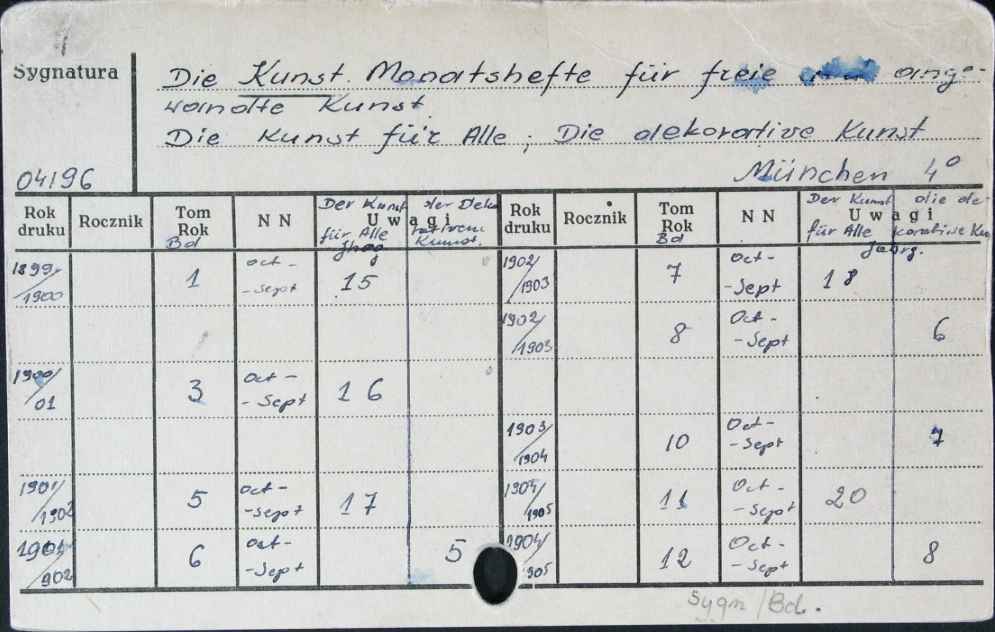 Sygnatura
Die Kunst. Monatshefte für freie und ange-
wandte Kunst
Die Kunst für Alle; Die dekorative Kunst
04196 München 4°
Rok druku Rocznik Tom Rok Bd N N Uwagi Der Kunst für Alle Jhrg der Dekorativen Kunst. Rok druku Rocznik Tom Rok Bd N N Uwagi Der Kunst für Alle die dekorative Ku Jahrg.
1899/1900 1 Oct - - Sept 15 1902/1903 7 Oct - - Sept 18
1902/1903 8 Oct - - Sept 6
1900/01 3 Oct - - Sept 16
1903/1904 10 Oct - - Sept 7
1901/1902 5 Oct - - Sept 17 1904/1905 11 Oct - - Sept 20
1901/902 6 Oct - - Sept 5 1904/905 12 Oct - - Sept 8
Sygn/Bd.